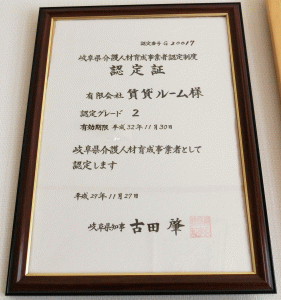 認定番号 G30017
岐阜県介護人材育成事業者認定制度
認定証
有限会社 賃貸ルーム様
認定グレード 2
有効期限 平成32年11月30日
岐阜県介護人材育成事業者として
認定します
平成29年11月27日
岐阜県知事 古田 肇